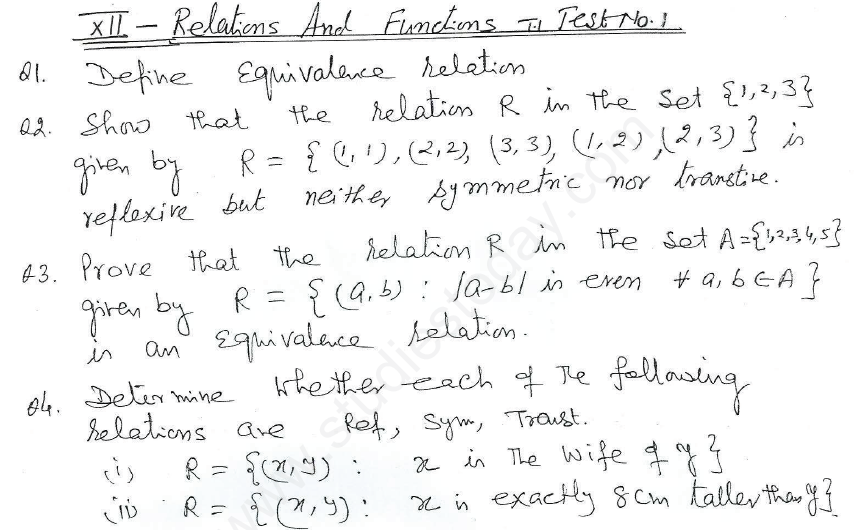 XII - Relations And Functions T.1 Test No. 1
Q1. Define Equivalence relation
Q2. Show that the relation R in the set {1,2,3}
given by R = { (1,1), (2,2), (3,3), (1,2), (2,3) } is
reflexive but neither symmetric nor transtive.
Q3. Prove that the relation R in the set A={1,2,3,4,5}
given by R = { (a,b) : |a-b| is even ∀ a, b ∈ A }
is an Equivalence relation.
Q4. Determine whether each of the following
relations are Ref, Sym, Trast.
(i) R = {(x,y) : x is The Wife of y}
(ii) R = {(x,y) : x is exactly 8cm taller than y}
www.studiestoday.com